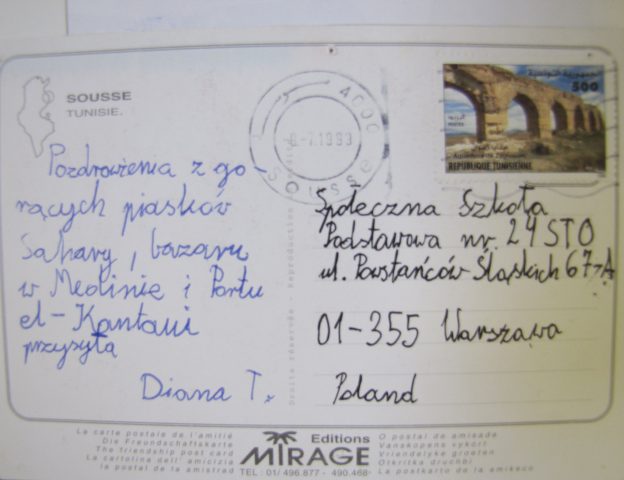 SOUSSE
TUNISIE.
4000
Sousse
الجمهورية التونسية
500
REPUBLIQUE TUNISIENNE
Pozdrowienia z go-
rących piasków
Sahary, bazaru
w Medinie i Portu
el-Kantaui
przysyła
Diana T.
Społeczna Szkoła
Podstawowa nr. 24 STO
ul. Powstańców Śląskich 67A
01-355 Warszawa
Poland
Droits réservés - Reproduction
La carte postale de l'amitié
Die Freundschaftskarte
The friendship post card
La cartolina dell' amicizia
la postal de la amistrad
Editions
MIRAGE
TEL : 01/ 496.877 - 490.468
O postal de amisade
Vanskopens vykort
Vriendelyke groeten
Otkritka druchbi
La postkarto de la amikeco